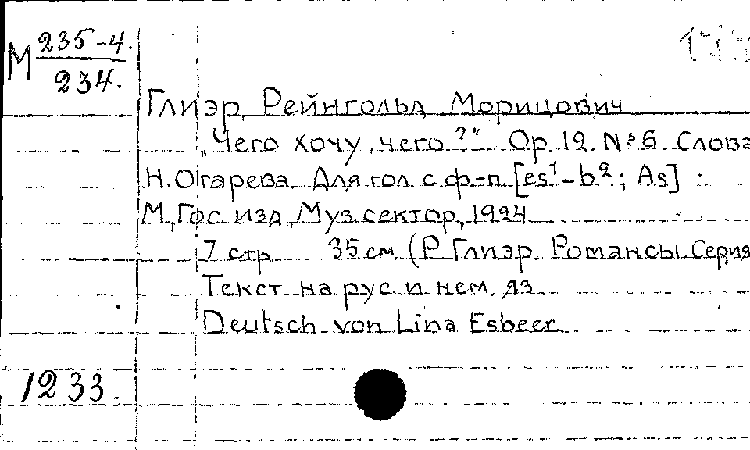 М 235-4.
234.
Глиэр, Рейнгольд Морицович
„Чего хочу, чего?" Op. 12. № 6. Слова
Н. Огарева. Для гол. с ф-п [es¹-b²; As]
М., Гос. изд., Муз. сектор, 1924
7 стр. 35 см. (Р. Глиэр. Романсы. Серия
Текст на рус. и нем. яз.
Deutsch von Lina Esbeer
1233.